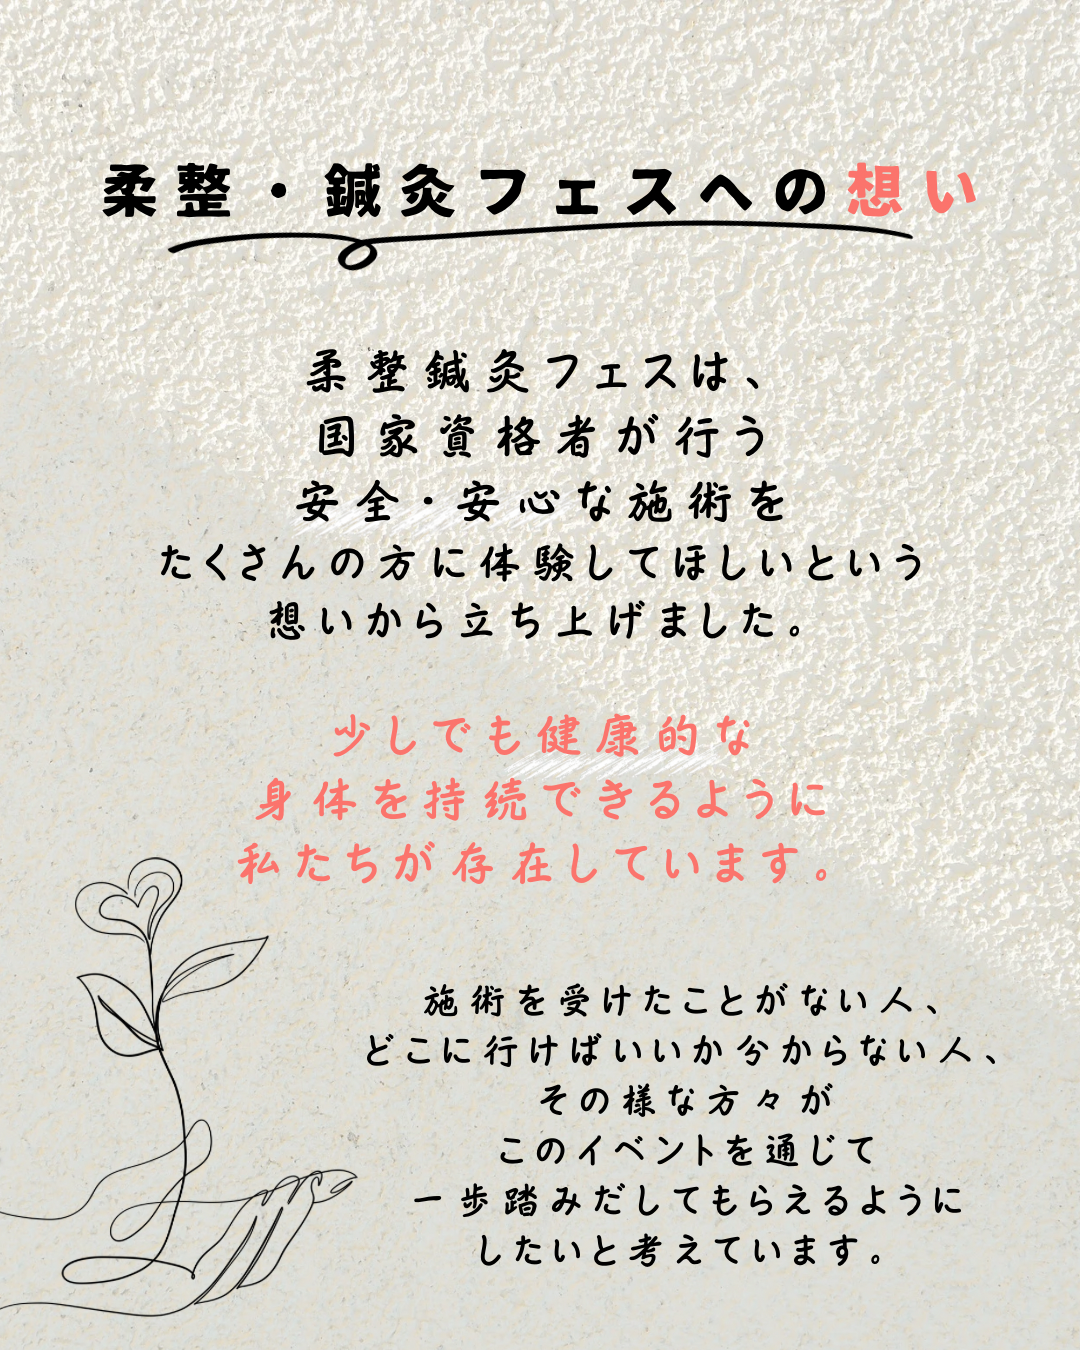 柔整・鍼灸フェスへの想い
柔整鍼灸フェスは、
国家資格者が行う
安全・安心な施術を
たくさんの方に体験してほしいという
想いから立ち上げました。
少しでも健康的な
身体を持続できるように
私たちが存在しています。
施術を受けたことがない人、
どこに行けばいいか分からない人、
その様な方々が
このイベントを通じて
一歩踏みだしてもらえるように
したいと考えています。